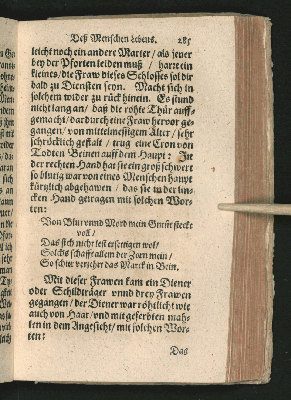 Deß Menschen Lebens. 285
leicht noch ein andere Marter / als jener
bey der Pforten leiden muß / harre ein
kleines / die Fraw dieses Schlosses sol dir
bald zu Diensten seyn. Macht sich in
solchem wider zu rück hinein. Es stund
nicht lang an / daß die rohte Thür auff-
gemacht / dardurch eine Fraw hervor ge-
gangen / von mittelmessigem Alter / sehr
schröcklich gestalt / trug eine Cron von
Todten Beinen auff dem Haupt: In
der rechten Hand hat sie ein groß schwert
so blutig war von eines Menschen haupt
kürtzlich abgehawen / das sie in der lin-
cken Hand getragen mit solchen Wor-
ten:
Von Blut vnnd Mord mein Gmüt steckt
voll /
Das sich nicht lest ersettigen wol /
Solchs schafft allem der Zorn mein /
So schier verzehrt das Marck in Bein.
Mit dieser Frawen kam ein Diener
oder Schildträger vnnd drey Frawen
gegangen / der Diener war röhtlicht wie
auch von Haar / vnd mit geferbten mah-
len in dem Angesicht / mit solchen Wor-
ten:
Das